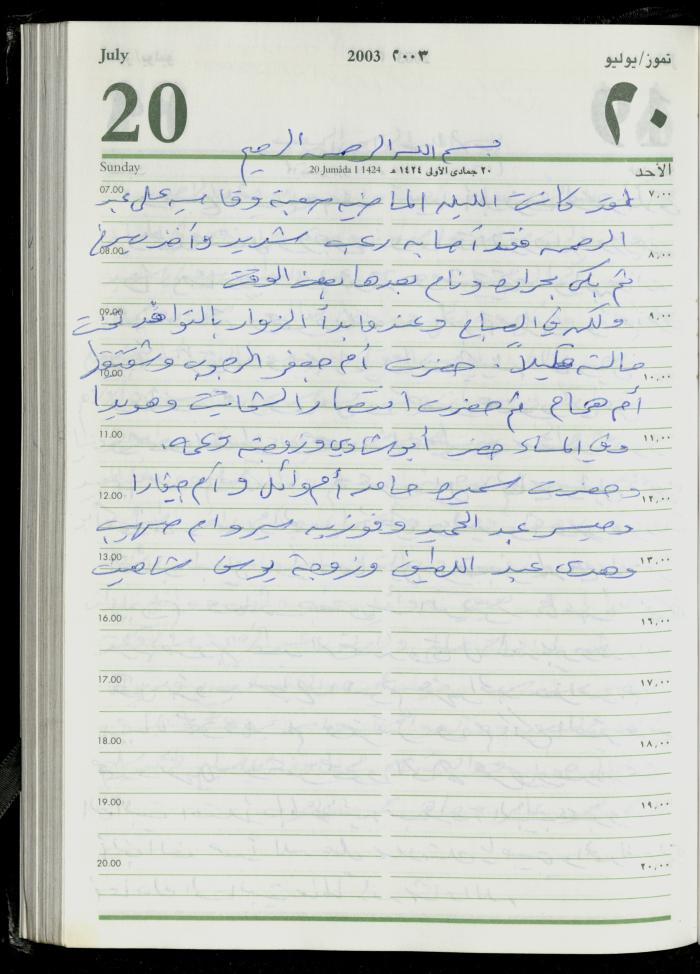 July 2003 ٢٠٠٣ تموز/يوليو
20 ٢٠
بسم الله الرحمن الرحيم
Sunday 20 Jumâda I 1424 ٢٠ جمادى الأولى ١٤٢٤ هـ الأحد
07.00 لقد كانت الليلة الماضية صعبة وقاسية على عبد ٧,٠٠
الرحمن فقد أصابه رعب شديد وأخذ
08.00 ٨,٠٠
ثم بكى بحرارة ونام بعدها بعض الوقت
09.00 ولكن في الصباح وعندما بدأ الزوار بالتوافد ٩,٠٠
حالته قليلاً. حضرت أم جعفر الرجوب وشقيقتها
10.00 ١٠,٠٠
أم همام ثم حضرت انتصار الشحاتيت وهويدا
11.00 وفي المساء حضر أبو شادي وزوجته وعمه. ١١,٠٠
وحضرت سميرة حامد أم وائل و أم جيفارا
12.00 ١٢,٠٠
وميسر عبد الحميد وفوزية سير وام صهيب
13.00 وهدى عبد اللطيف وزوجة يوسف شاهين ١٣,٠٠
16.00 ١٦,٠٠
17.00 ١٧,٠٠
18.00 ١٨,٠٠
19.00 ١٩,٠٠
20.00 ٢٠,٠٠